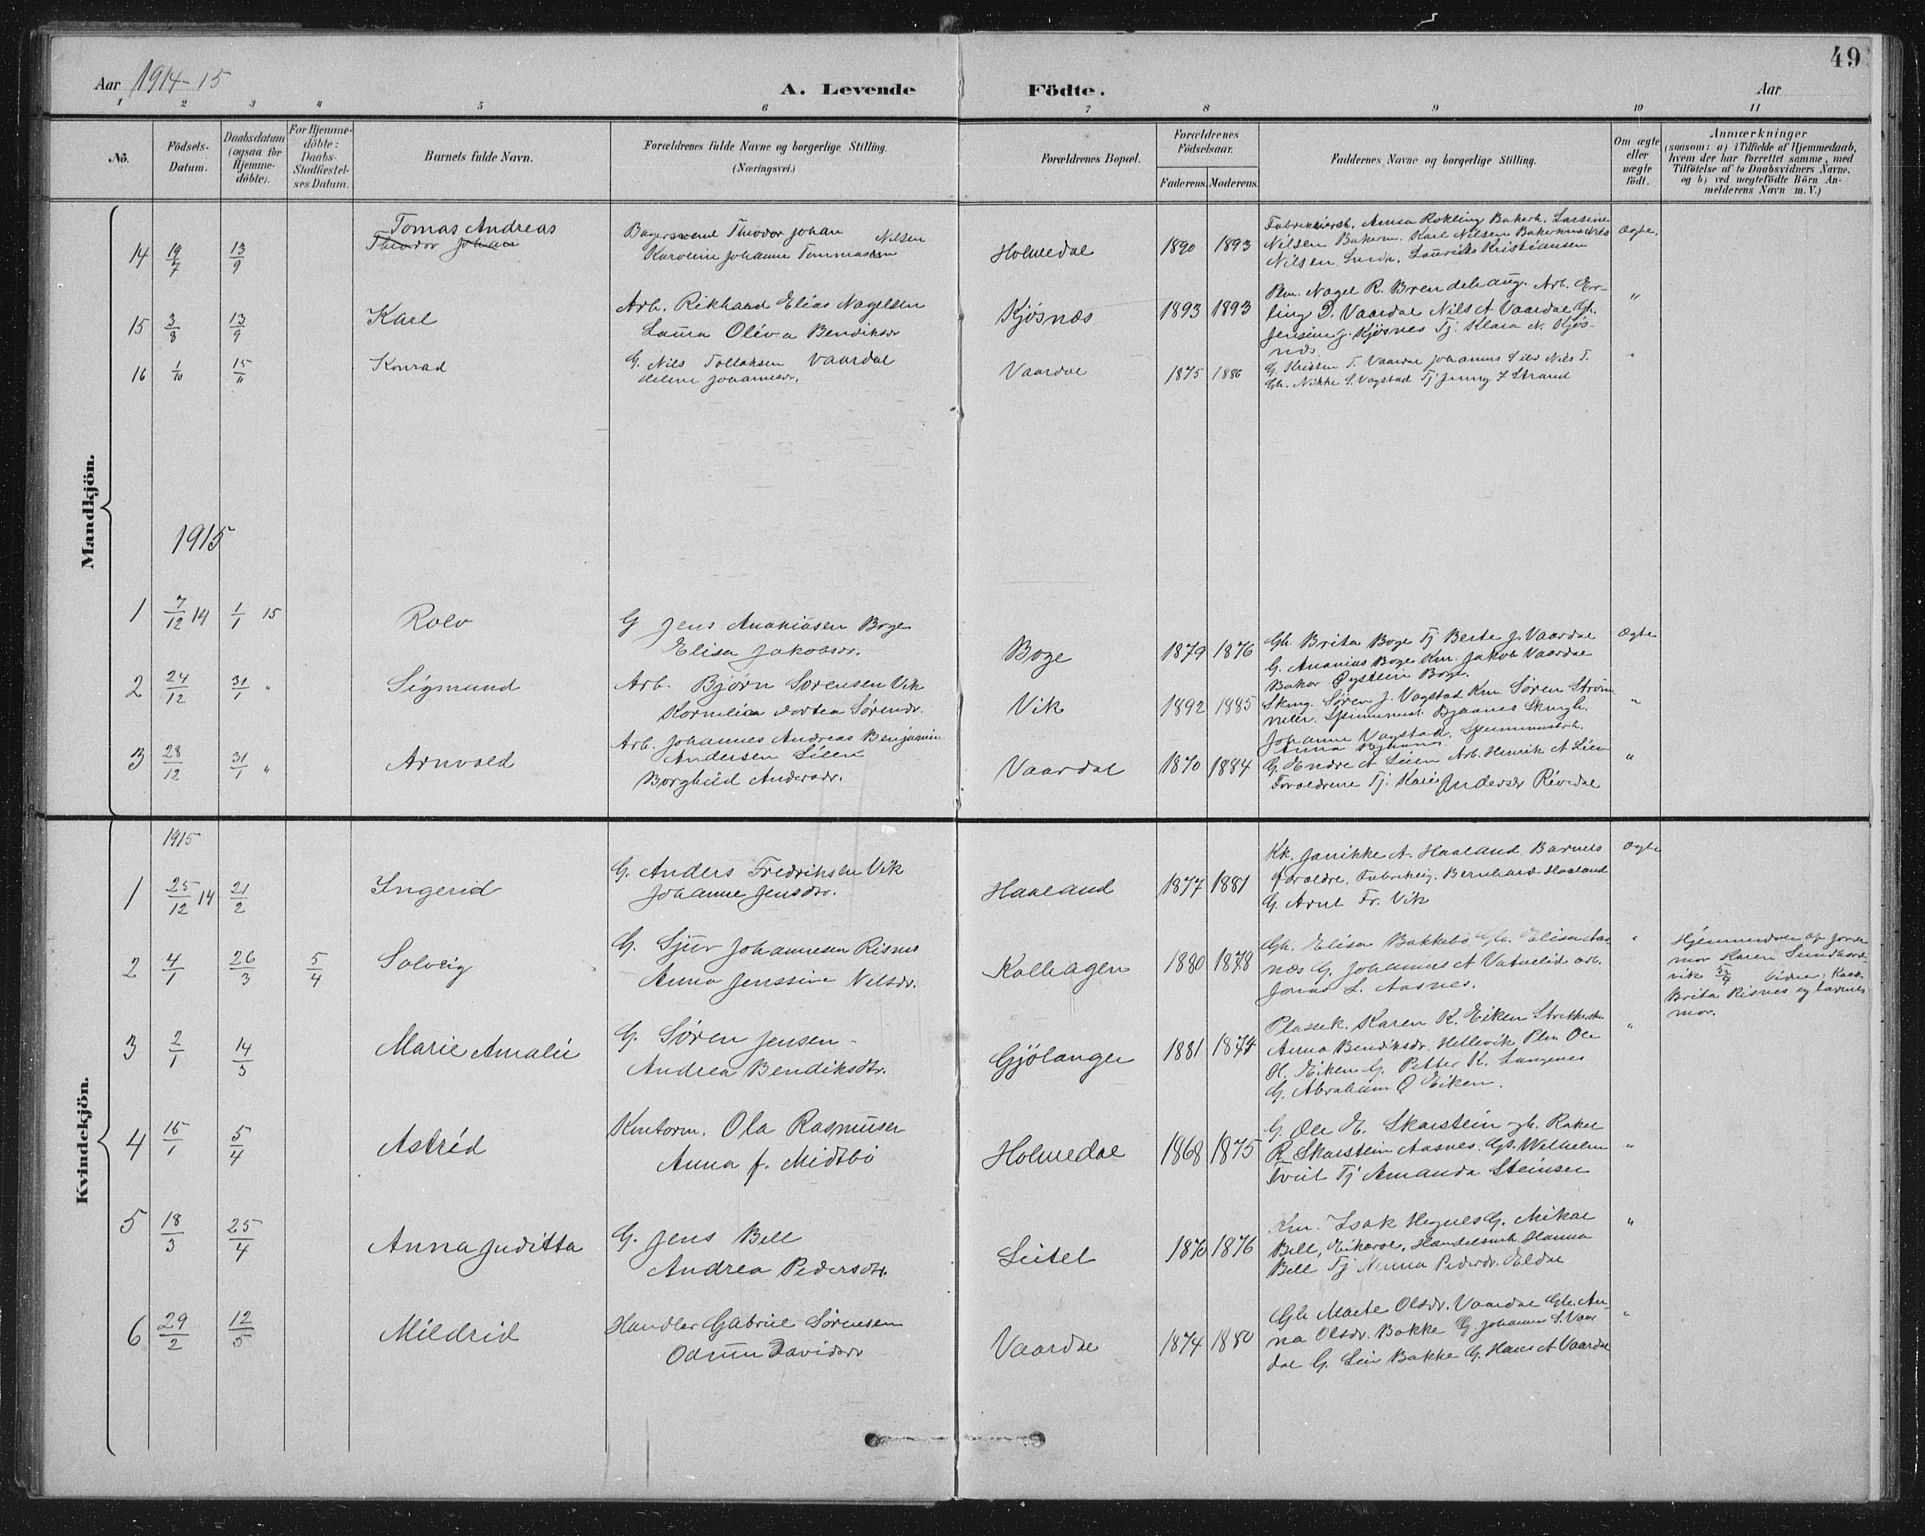 49
Aar 1914-15
A. Levende Födte.
Aar
1 2 3 4 5 6 7 8 9 10 11
No.
Födsels-Datum.
Daabsdatum (ogsaa for Hjemmedöbte).
For Hjemmedöbte: Daabs-Stadfestelses Datum.
Barnets fulde Navn.
Forældrenes fulde Navne og borgerlige Stilling. (Næringsvei.)
Forældrenes Bopæl.
Forældrenes Födselsaar.
Faderens. Moderens.
Faddernes Navne og borgerlige Stilling.
Om ægte eller uægte födt.
Anmærkninger
(saasom: a) i Tilfælde af Hjemmedaab,
hvem der har forrettet samme, med
Tilföielse af to Daabsvidners Navne.
og b) ved uægtefödte Börn An-
melderens Navn m. V.)
Mandkjön.
14 19/7 13/9
Tomas Andreas
Theodor Johan
Bagersvend Theodor Johan Nilsen
Karoline Johanne Tommasen
Holmedal 1890 1893
Anna Rokling Bakerh. Larsine
Nilsen Bakerm. Karl Nilsen
Nilsen Laurids Kristiansen
Ægte.
15 3/8 13/9
Karl
Arb. Rikhard Elias Nagelsen
Laura Oliva Bendiksdr
Kjøsnæs 1893 1893
Plm. Nagel R. Brendehaug. Arb. Er-
ling D. Vaardal Nils A Vaardal Gh.
Jensine J. Kjøsnes Tj. Klara N. Kjøs-
næs
"
16 1/10 15/11
Konrad
G. Nils Tollaksen Vaardal
Helene Johannesdr.
Vaardal 1875 1886
G. Kristen T. Vaardal Johannes Nils T.
Gh. Nikke S. Vagstad Tj Jenny Strand
"
1915
1 7/12 14 1/1 15
Rolv
G Jens Ananiasen Boge
Elisa Jakobsdr.
Boge 1879 1876
Gh. Brita Boge Tj Berte J. Vaardal
G. Ananias Boge Km. Jakob Vaardal
Baker Øystein Boge.
Ægte
2 24/12 31/1 "
Sigmund
Arb. Bjørn Sørensen Vik
Kornelia Dortea Sørensdr.
Vik 1892 1885
Skrog. Søren J. Vagstad Km. Søren Strøm
Johanne Vagstad,
"
3 28/12 31/1 "
Arnvald
Arb. Johannes Andreas Benjamin
Andersen Lèien
Borghild Andersdr.
Vaardal 1870 1884
G. Endre A Leien Arb. Henrik A Leien
Forældrene Tj. Kari Andersdr Rivedal
"
Kvindekjön.
1915
1 25/12 14 21/2
Ingerid
G. Anders Fredriksen Vik
Johanne Jensdtr.
Haaland 1877 1881
Kk. Janikke A. Haaland Barnets
forældre. Fabrikeig. Bernhard Haaland
G. Arnt Fr. Vik
Ægte
2 4/1 26/3 5/4
Solveig
G. Sjur Johannesen Risnes
Anna Jenssine Nilsdr.
Kolhagen 1880 1878
Gh. Elisa Bakkebø, Gh. Elisa Aas-
næs G. Johannes A Vatnelid arb.
Jonas L. Aasnes.
"
Hjemmedøbt af Jorde-
mor Karen Sundfjord-
vik
Brita Risnes og barnets
mor.
3 2/1 14/3
Marie Amalie
G. Søren Jensen -
Andrea Bendiksdtr.
Gjölanger 1881 1874
Plassek. Karen K. Eiken
Anna Bendiksdr. Hellevik Plm Ole
H. Eiken G. Petter K. Langenes
G. Abraham O Eiken.
"
4 15/1 5/4
Astrid
Kontorm. Ola Rasmusen
Anna J. Midtbö
Holmedal 1868 1875
G Ole H. Skarstein gh. Rakel
R Skarstein Aasnes. Gs. Wilhelm
Tveit Tj Amanda Steinsen
"
5 18/3 25/4
Anna Juditta
G. Jens Bell
Andrea Pedersdtr.
Leitet 1870 1876
Km. Isak Hegnes G. Mikal
Bell, Handelsmh. Hanna
Bell Tj Nanna Pedersdr. Eldal
"
6 29/2 12/5
Mildrid
Handler Gabriel Sørensen
Odrun Davidsdr
Vaardal 1874 1880
Gh Marte Olsdr. Vaardal Gh. An-
na Olsdr. Bakke G. Johannes S. Vaar
dal G. Bakke G. Hans A Vaardal
"